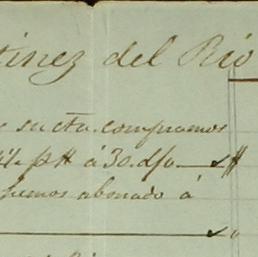 tinez del Rio
su cta. compramos
á 30. d/v. $
hemos abonado á